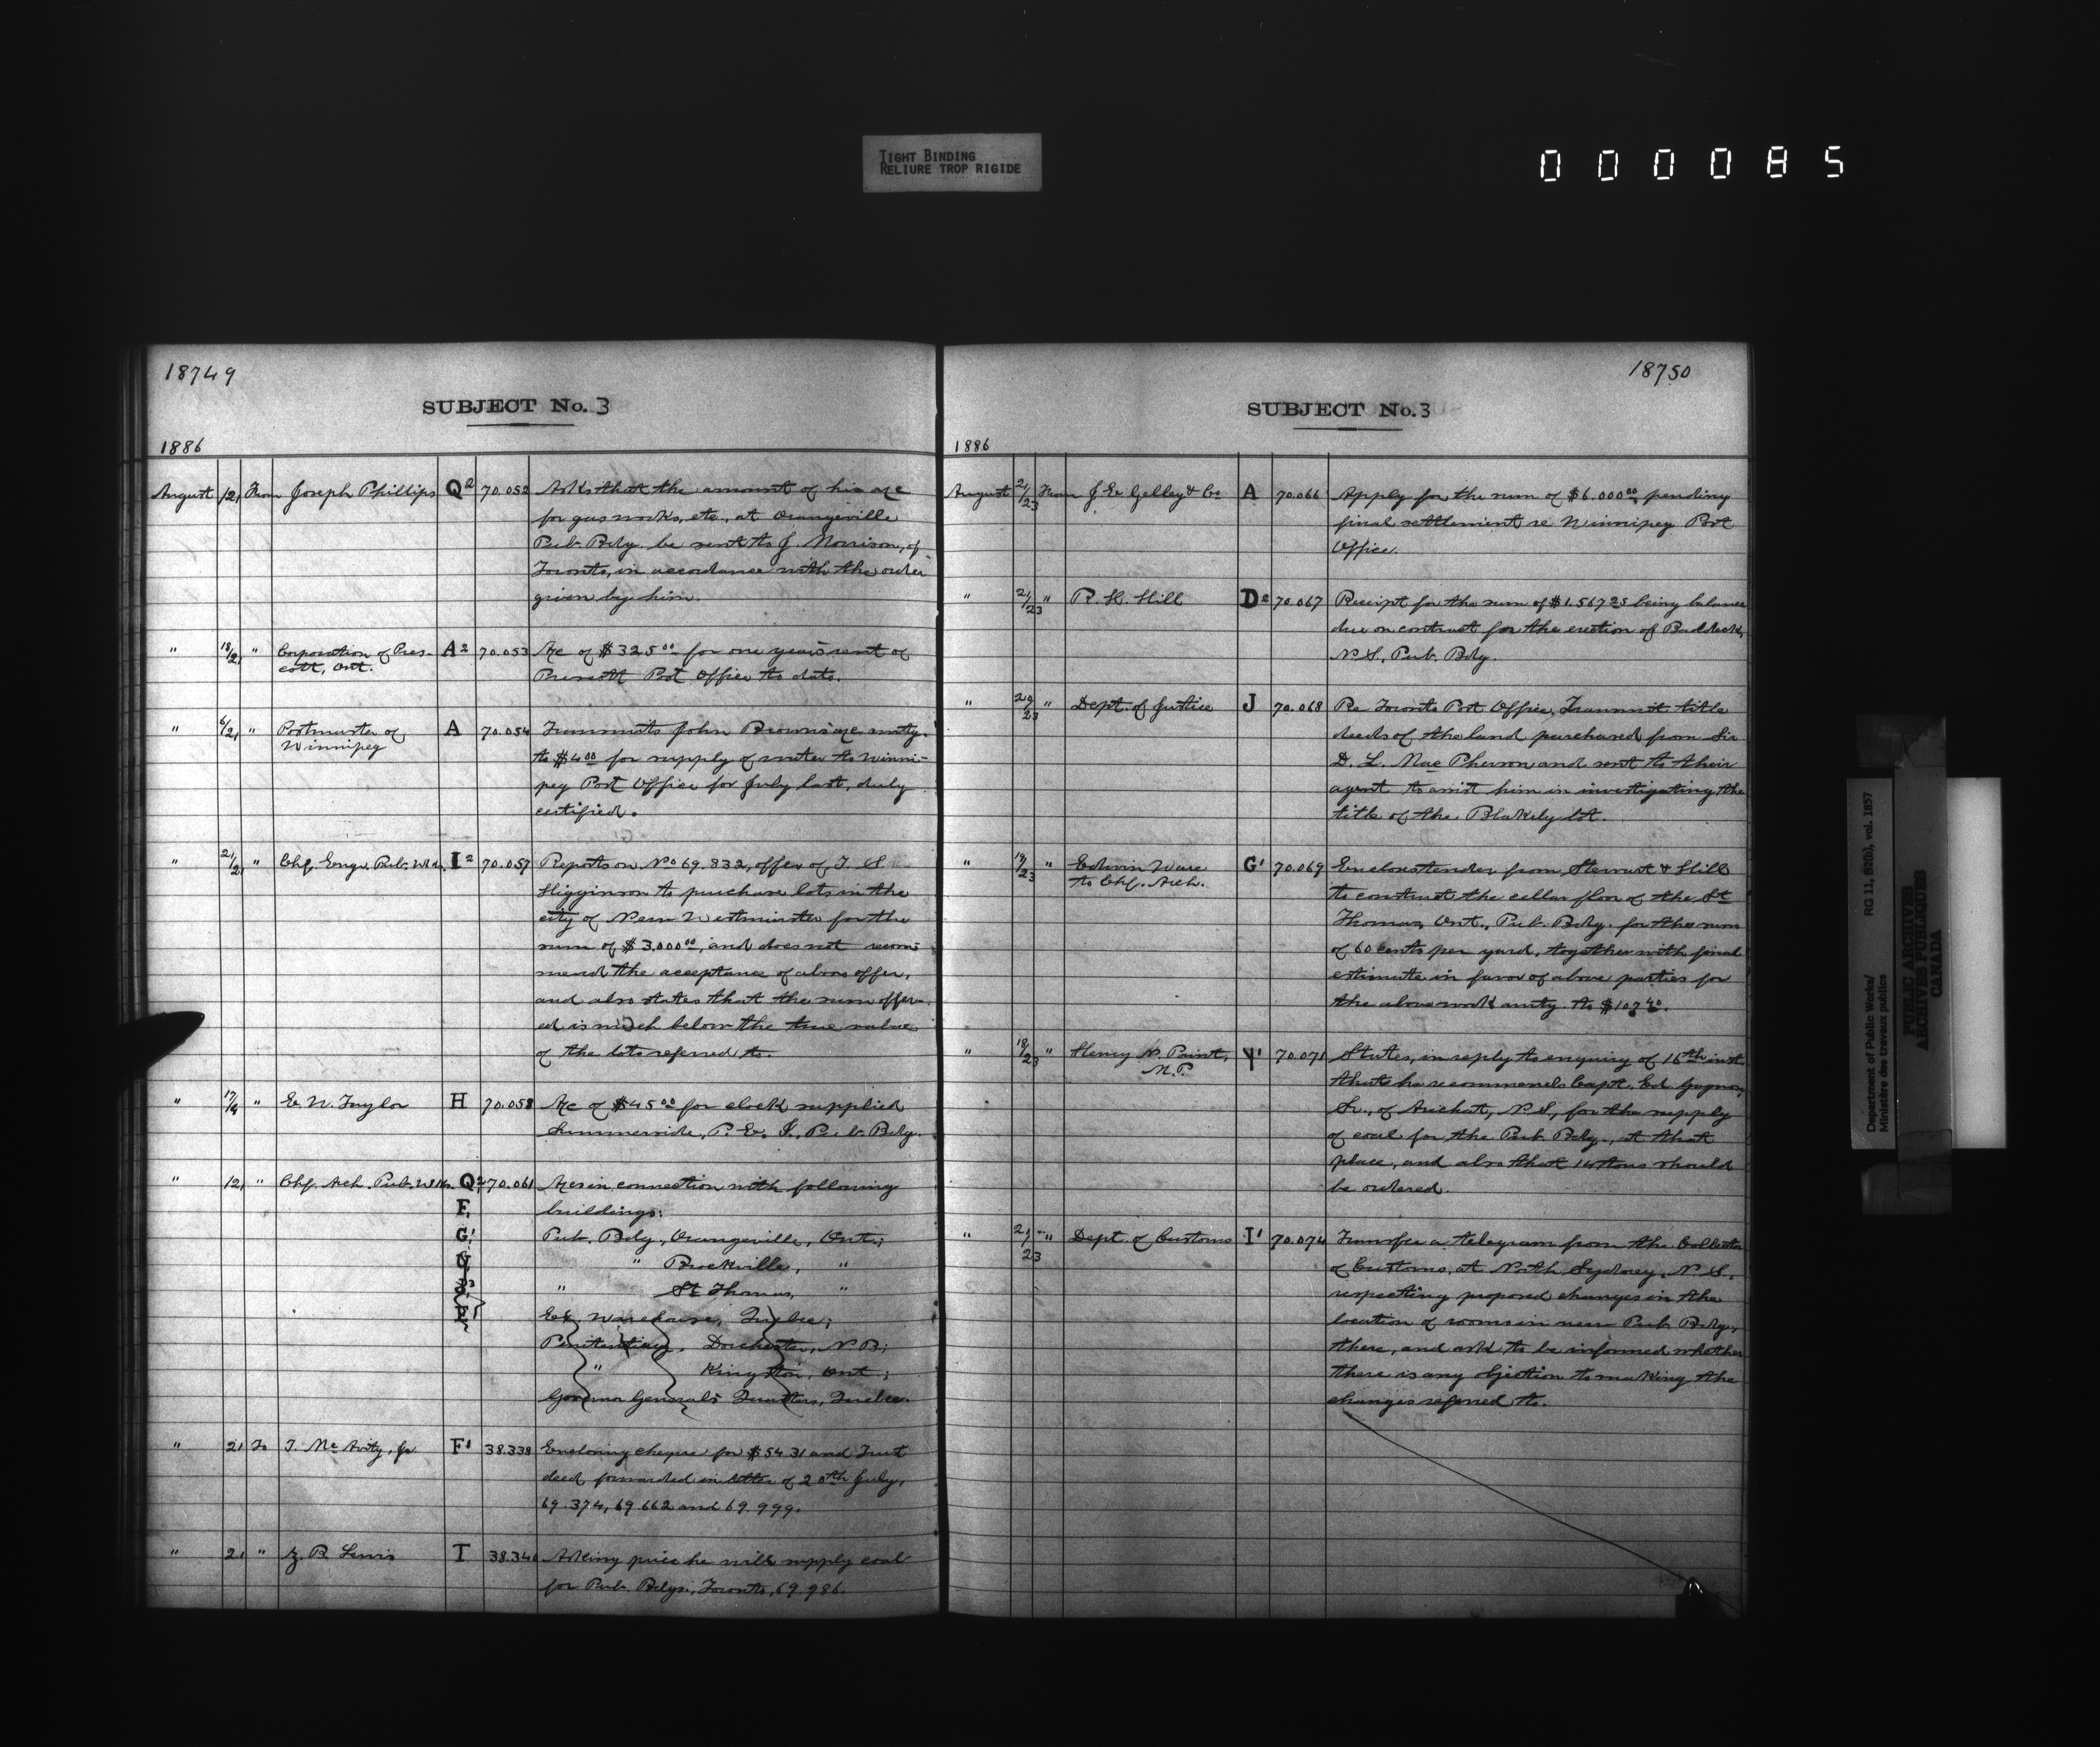 TIGHT BINDING
RELIURE TROP RIGIDE
000085
18749
SUBJECT No. 3
1886
August /21 From Joseph Phillips Q2 70.052 Asks that the amount of his a/c
for gas works, etc., at Orangeville
Pub. Bdg. be sent to J. Morrison, of
Toronto, in accordance with the order
given by him.
" 18/21 " Corporation of Pres- A2 70.053 A/c of $325.00 for one year's rent of
cott, Ont. Prescott Post Office to date.
" 6/21 " Postmaster of A 70.054 Transmits John Brown's a/c amtg.
Winnipeg to $4.00 for supply of water to Winni-
peg Post Office for July last, duly
certified.
" 21/21 " Chf. Engr. Pub. Wks. I2 70.057 Reports on No 69.832, offer of T. S.
Higginson to purchase lots in the
city of New Westminster for the
sum of $3.000.00, and does not recom-
mend the acceptance of above offer,
and also states that the sum offer-
ed is much below the true value
of the lots referred to.
" 17/ " E. W. Taylor H 70.058 A/c of $45.00 for clock supplied
Summerside, P. E. I., Pub. Bdg.
" /21 " Chf. Arch. Pub. Wks. Q2 70.061 A/cs in connection with following
F. buildings:
G' Pub. Bdg., Orangeville, Ont.;
" Brockville, "
" St Thomas, "
Ex. Warehouse, Quebec;
Penitentiary, Dorchester, N.B.;
" Kingston, Ont.;
Governor General's Quarters, Quebec.
" 21 To T. McAvity, Jr F' 38.338 Enclosing cheque for $54.31 and Trust
deed forwarded in letter of 20th July,
69.374, 69.662 and 69.999.
" 21 " Z. B. Lewis T 38.340 Asking price he will supply coal
for Pub. Bdgs., Toronto, 69.986.
18750
SUBJECT No. 3
1886
August 21/23 From J. E. Gelley & Co A 70.066 Apply for the sum of $6.000.00 pending
final settlement re Winnipeg Post
Office.
" 21/23 " P. H. Hill D2 70.067 Receipt for the sum of $1.567.25 being balance
due on contract for the erection of Baddeck,
N.S., Pub. Bdg.
" 2/23 " Dept. of Justice J 70.068 Re Toronto Post Office. Transmit title
deeds of the land purchased from Sir
D. L. MacPherson and sent to their
agent to assist him in investigating the
title of the Blakely lot.
" 19/23 " Edwin Ware G' 70.069 Encloses tender from Stewart & Hill
to Chf. Arch. to construct the cellar floor of the St
Thomas, Ont., Pub. Bdg. for the sum
of 60 cents per yard, together with final
estimate in favor of above parties for
the above work amtg. to $107.40.
" 18/23 " Henry N. Paint, Y' 70.071 States, in reply to enquiry of 16th inst.
M.P. that he recommends Capt. Ed. Gagnon,
Sr., of Arichat, N.S., for the supply
of coal for the Pub. Bdg., at that
place, and also that 14 tons should
be ordered.
" 2/23 " Dept. of Customs I' 70.074 Transfer a telegram from the Collector
of Customs, at North Sydney, N.S.
respecting proposed changes in the
location of rooms in new Pub. Bdg.,
there, and ask to be informed whether
there is any objection to making the
changes referred to.
Department of Public Works/ RG 11, B2(b), vol. 1857
Ministère des travaux publics
PUBLIC ARCHIVES
ARCHIVES PUBLIQUES
CANADA